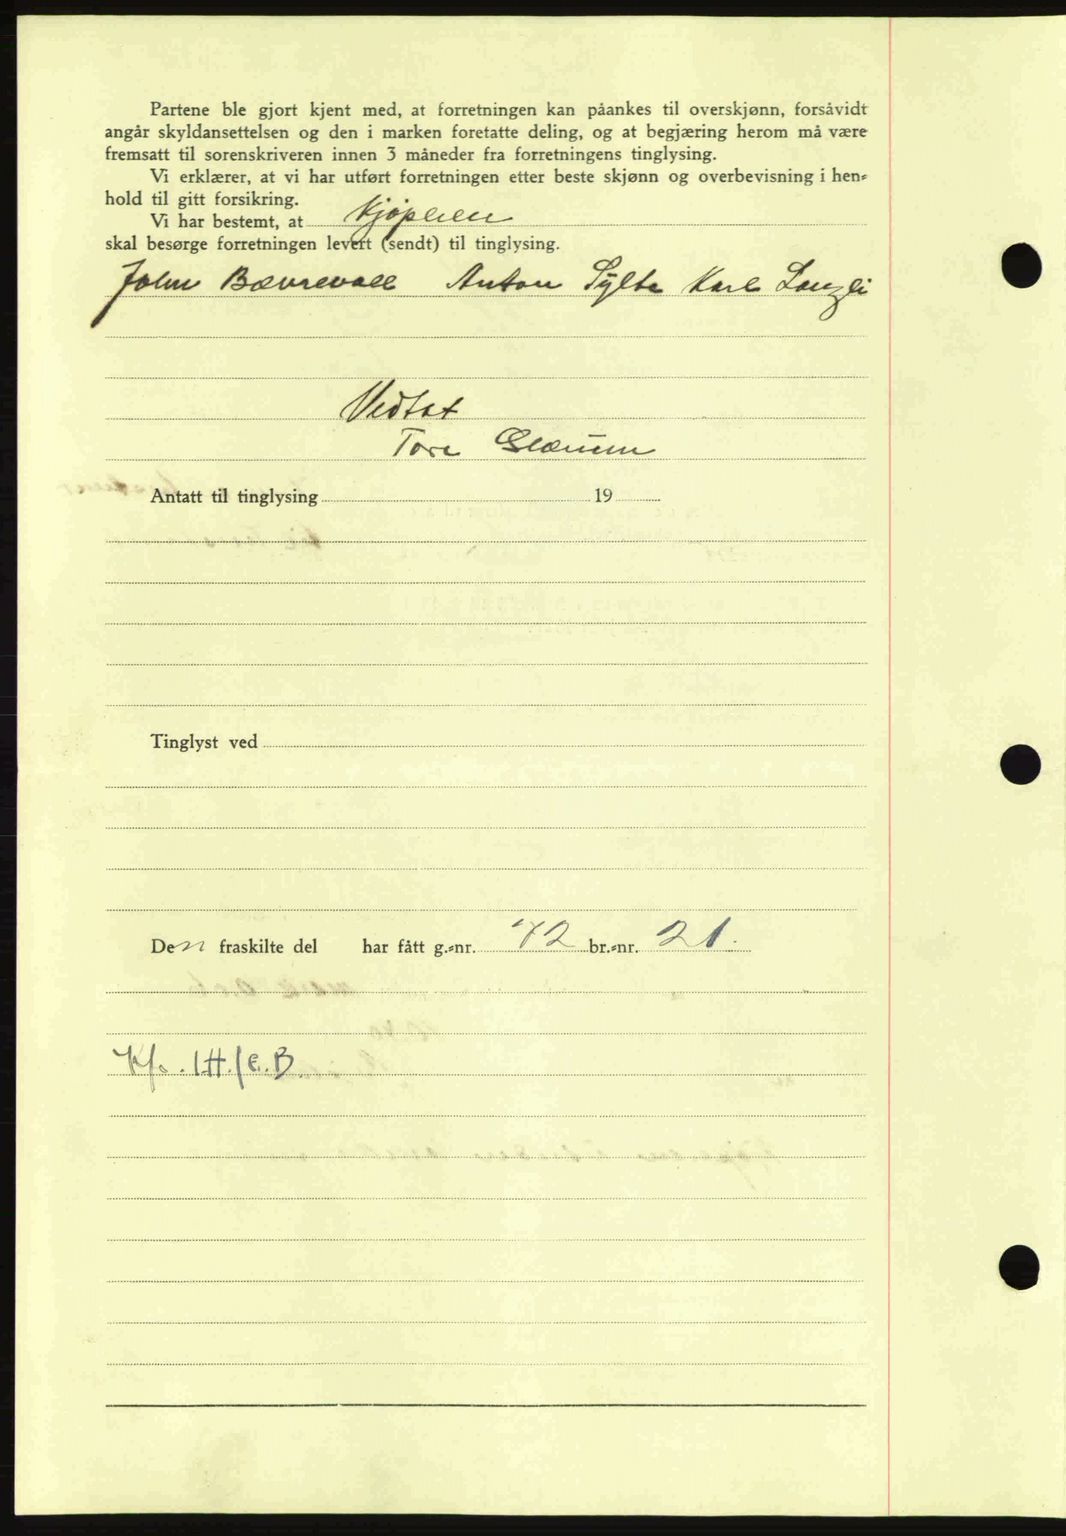 Partene ble gjort kjent med, at forretningen kan påankes til overskjønn, forsåvidt
angår skyldansettelsen og den i marken foretatte deling, og at begjæring herom må være
fremsatt til sorenskriveren innen 3 måneder fra forretningens tinglysing.
Vi erklærer, at vi har utført forretningen etter beste skjønn og overbevisning i hen-
hold til gitt forsikring.
Vi har bestemt, at kjøperen
skal besørge forretningen levert (sendt) til tinglysing.
John Bævrevoll Anton Sylte Karl
Vedtat
Tore Glærum
Antatt til tinglysing 19
Tinglyst ved
Den fraskilte del har fått g.-nr. 72 br.-nr. 21.